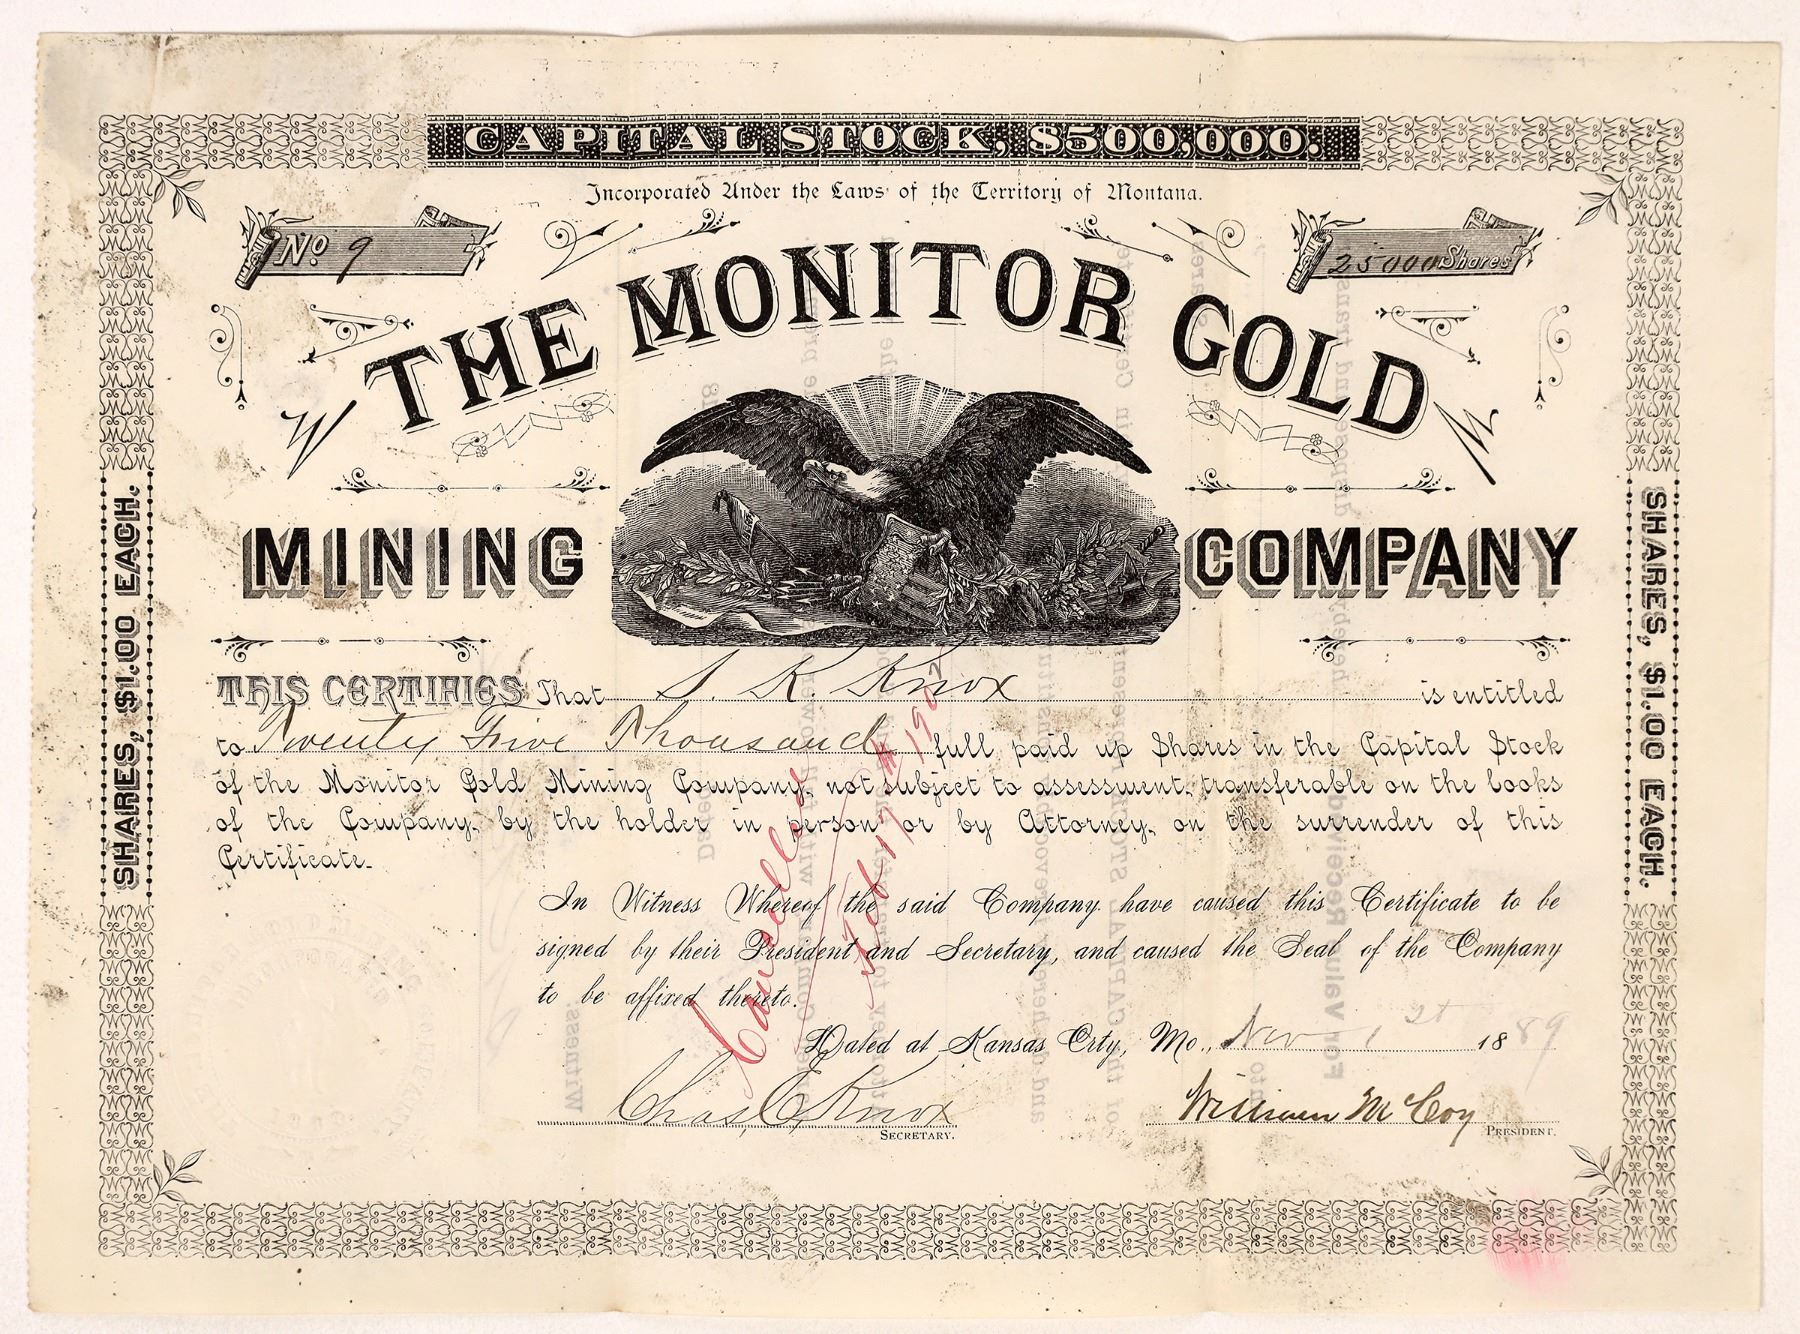 CAPITAL STOCK, $500,000.
Incorporated Under the Laws of the Territory of Montana.
No. 9
25000 Shares
THE MONITOR GOLD
MINING COMPANY
SHARES, $1.00 EACH.
SHARES, $1.00 EACH.
THIS CERTIFIES That S. K. Knox is entitled
to Twenty Five Thousand full paid up Shares in the Capital Stock
of the Monitor Gold Mining Company, not subject to assessment, transferable on the books
of the Company, by the holder in person or by Attorney, on the surrender of this
Certificate.
Cancelled
Feb 17th 1902
In Witness Whereof the said Company have caused this Certificate to be
signed by their President and Secretary, and caused the Seal of the Company
to be affixed thereto.
Dated at Kansas City, Mo., Nov 1st 1889
Chas. C. Knox
SECRETARY.
William McCoy
PRESIDENT.